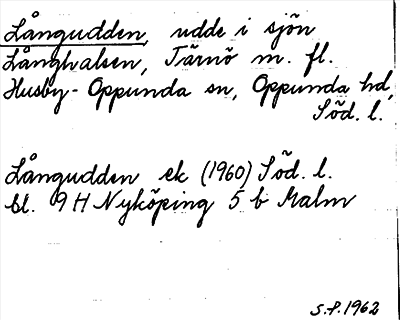 Långudden, udde i sjön
Långhalsen, Tärnö m. fl.
Husby-Oppunda sn, Oppunda hd,
Söd. l.
Långudden ek (1960) Söd. l.
bl. 9 H Nyköping 5 b Malm
S.P. 1962